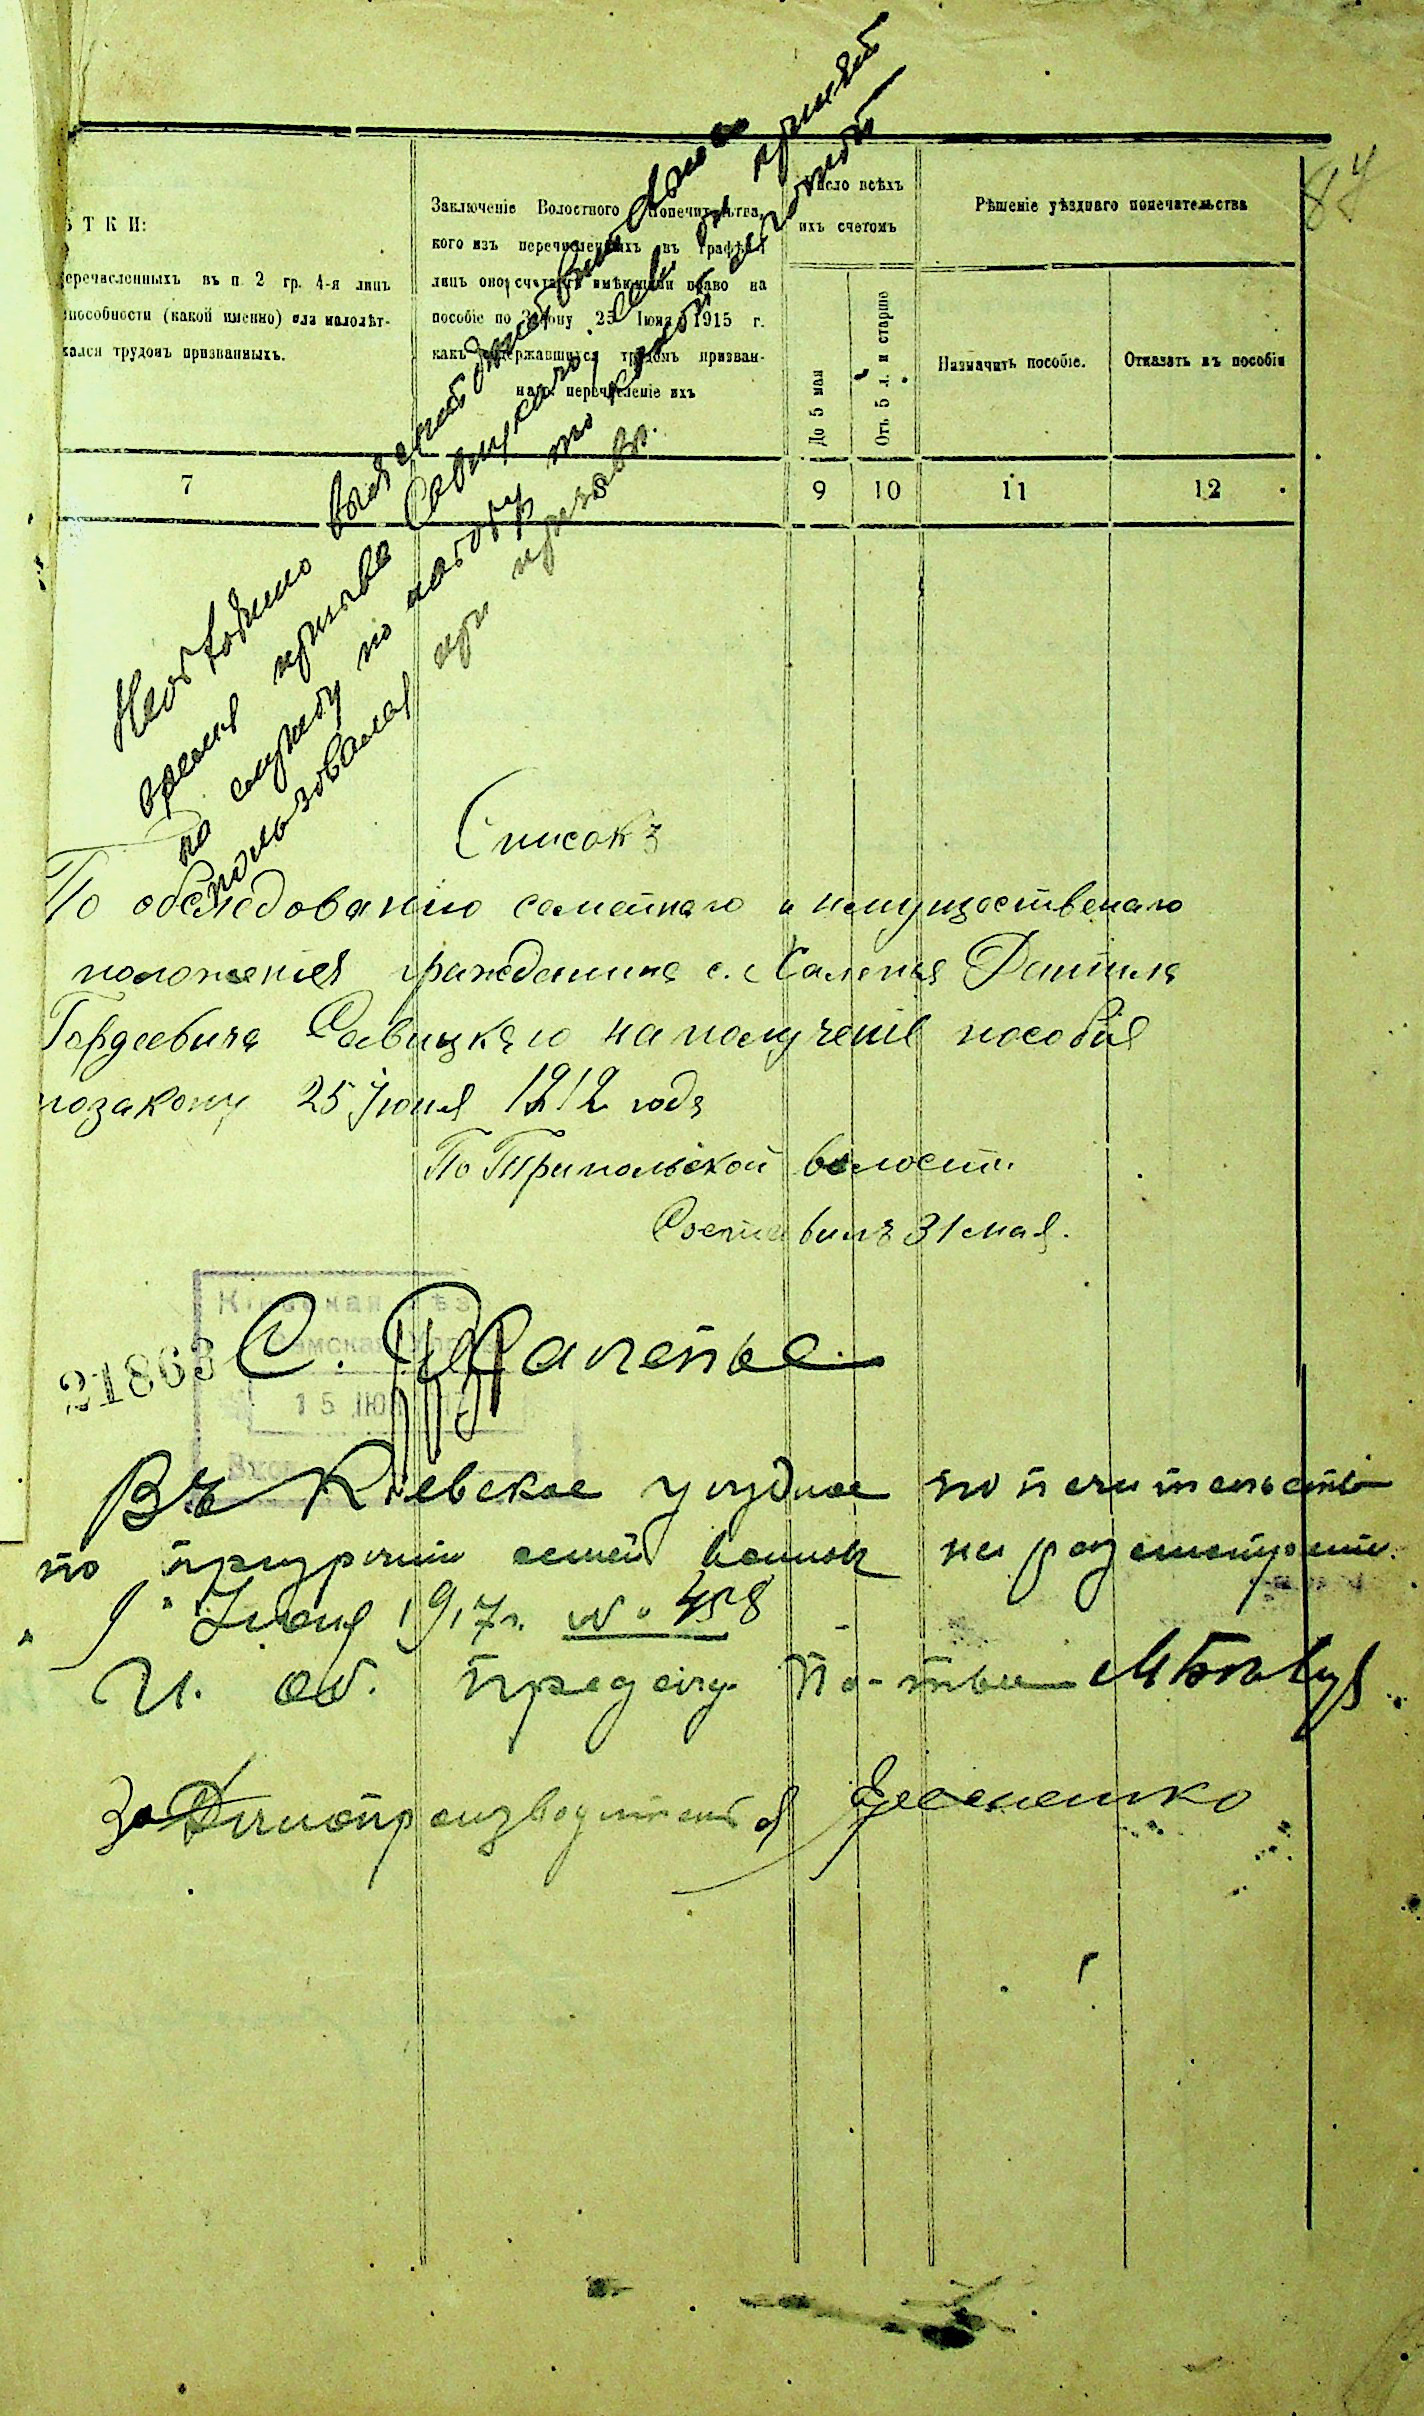 84
ѢТКИ:
перечисленныхъ въ п 2 гр. 4-я лицъ
способности (какой именно) или малолѣт-
жался трудомъ призванныхъ.
Заключеніе Волостного Попечительства,
кого изъ перечисленныхъ въ графѣ
лицъ оно считаетъ имѣющими право на
пособіе по Закону 25 Іюня 1915 г.
какъ содержавшихся трудомъ призван-
наго. перечисленіе ихъ
Число всѣхъ
ихъ счетомъ
До 5 мая
Отъ 5 л. и старше
Рѣшеніе уѣзднаго попечательства
Назначить пособіе.
Отказать въ пособіи
7 8 9 10 11 12
Необходимо выяснить
время призыва Савицкаго,
на службу по набору то
пользовался при призывѣ.
Списокъ
По обслѣдованію семейнаго и имущественаго
положенія гражданина с. Халепья Даніила
Гордеевича Савицкаго на полученіе пособія
позакону 25 Іюня 1912 года
По Трипольской волости.
Составилъ 31 мая.
21863
С. Халепье
15 ІЮН
Въ Кіевское уѣздное попечительство
по призрѣнію семей воиновъ на разсмотреніе.
9 Іюня 1917 г. № 458
И. об. предсѣд. По-тва
За Дѣлопроизводителя